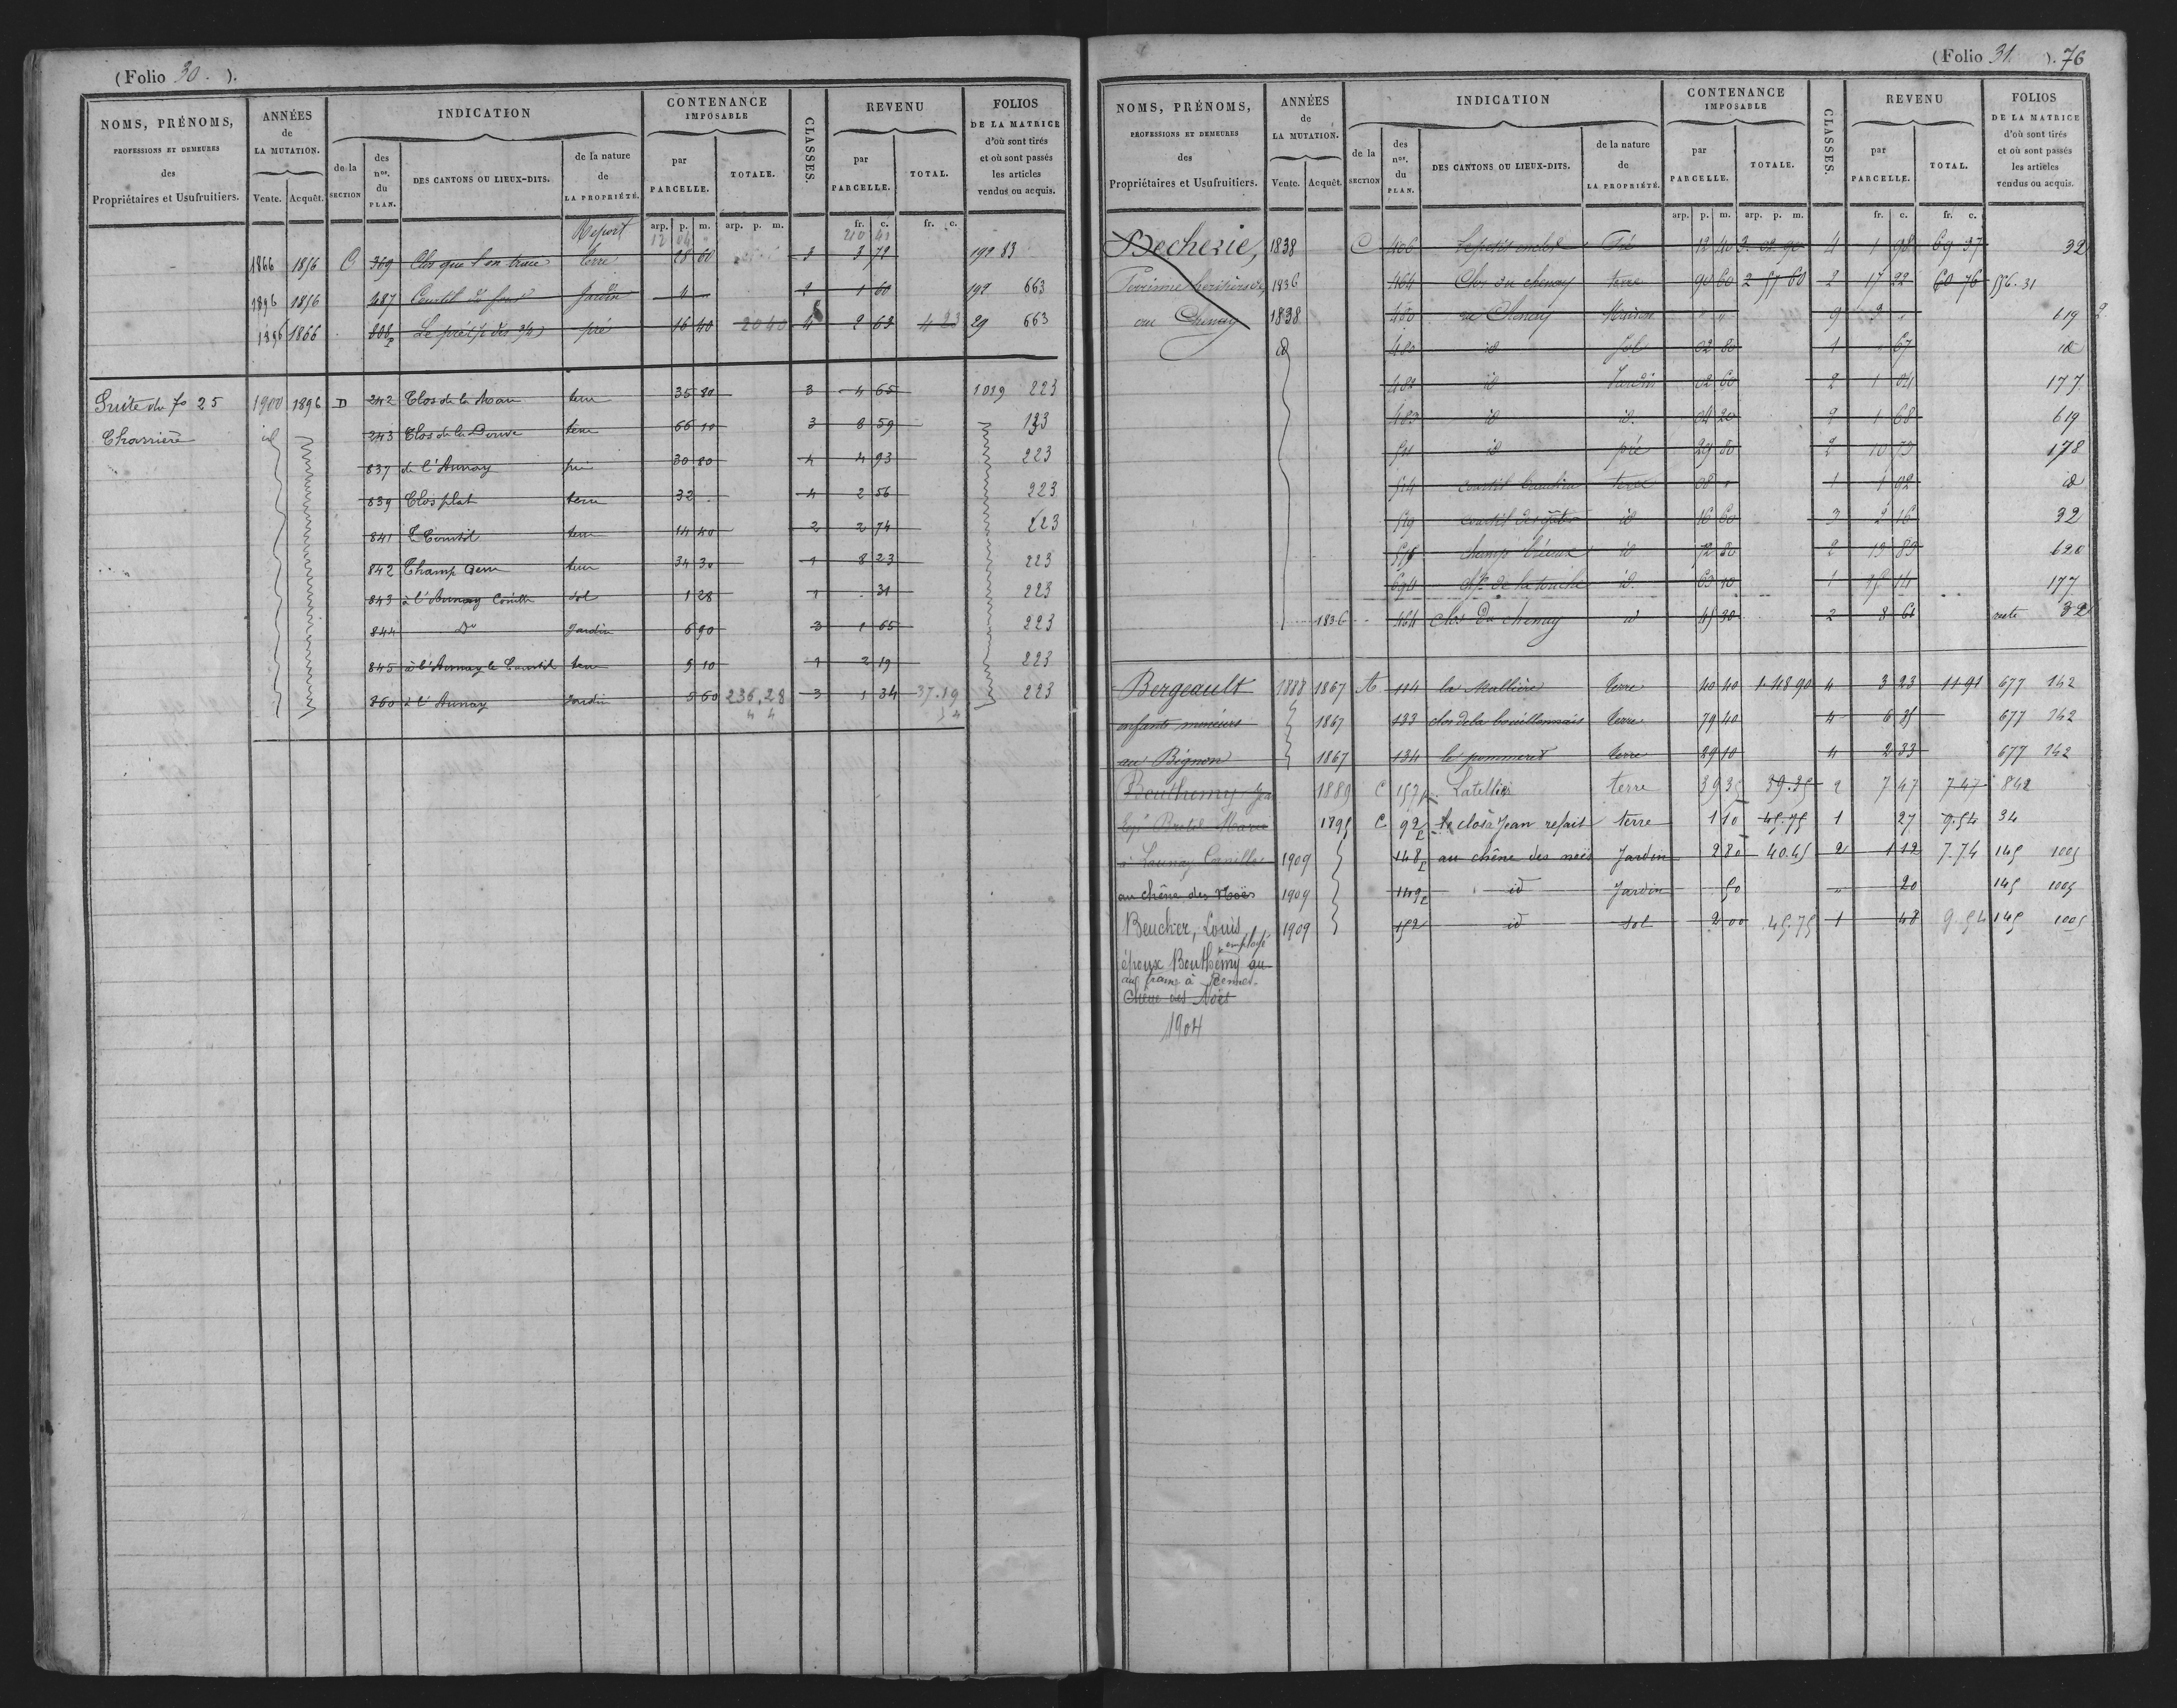 (Folio 30. ).
NOMS, PRÉNOMS,
PROFESSIONS ET DEMEURES
des
Propriétaires et Usufruitiers.
ANNÉES
de
LA MUTATION.
Vente. Acquêt.
INDICATION
de la
SECTION
des
nos.
du
PLAN.
DES CANTONS OU LIEUX-DITS.
de la nature
de
LA PROPRIÉTÉ.
CONTENANCE
IMPOSABLE
par
PARCELLE.
TOTALE.
CLASSES.
REVENU
par
PARCELLE.
TOTAL.
FOLIOS
DE LA MATRICE
d'où sont tirés
et où sont passés
les articles
vendus ou acquis.
arp. p. m. arp. p. m. fr. c. fr. c.
Report
1866 1856 C 369 Clos que l'on trace terre 18 60 3 2 79 192 83
1896 1856 487 Courtil du four Jardin 4 2 1 60 192 663
1896 1866 808p Le pré (p. des 3/4) pré 16 40 20 40 4 2 63 4 23 29 663
Suite du fo 25 1900 1896 D 242 Clos de la Mare terre 35 80 3 4 65 1039 223
Charrière id 243 Clos de la Douve terre 66 10 3 8 59 133
837 de l'Aunay pré 30 80 4 4 93 223
839 Clos plat terre 32 . 4 2 56 223
841 Le Courtil terre 14 40 2 2 74 223
842 Champ terre 34 30 1 8 23 223
843 à l'Aunay sol 1 28 1 . 31 223
844 Do Jardin 6 90 3 1 65 223
845 à l'Aunay le Courtil terre 9 10 1 2 19 223
860 à l'Aunay Jardin 5 60 236.28 3 1 34 37.19 223
(Folio 31. ). 76
NOMS, PRÉNOMS,
PROFESSIONS ET DEMEURES
des
Propriétaires et Usufruitiers.
ANNÉES
de
LA MUTATION.
Vente. Acquêt.
INDICATION
de la
SECTION
des
nos.
du
PLAN.
DES CANTONS OU LIEUX-DITS.
de la nature
de
LA PROPRIÉTÉ.
CONTENANCE
IMPOSABLE
par
PARCELLE.
TOTALE.
CLASSES.
REVENU
par
PARCELLE.
TOTAL.
FOLIOS
DE LA MATRICE
d'où sont tirés
et où sont passés
les articles
vendus ou acquis.
arp. p. m. arp. p. m. fr. c. fr. c.
Becherie, 1838 C 406 Le petit enclos Pré 12 40 3 02 90 4 1 98 69 37 32
Perrinne héritiers de, 1836 464 Clos du chenay terre 90 60 2 57 60 2 17 22 60 76 556.31
au Chenay 1838 480 au Chenay Maison " " 9 9 " 619
id 480 id Sol 02 80 1 " 67 id
482 id Jardin 02 60 2 1 04 177
483 id id. 04 20 2 1 68 619
id pré 29 80 2 10 73 178
514 courtil terre 08 " 1 1 92 id
519 courtil id 16 60 3 2 16 32
champ id 72 80 2 13 83 620
694 de la touche id. 63 10 1 15 14 177
1836 464 clos Du chenay id 45 30 2 8 61 reste 32
Bergeault 1888 1867 A 114 la Mallière terre 40 40 1.48 90 4 3 23 11 91 677 142
enfants mineurs 1867 133 clos de la bouillonnais terre 79 40 4 6 35 677 142
au Bignon 1867 134 le pommeret terre 29 10 4 2 33 677 142
Bouthemy 1889 C 157p Latellier terre 39 35 39.35 2 7 47 7.47 842
1895 C 92p le clos à Jean refait terre 1 10 45.75 1 27 9.54 34
1909 148p au chêne des noës Jardin 2 80 40.45 2 1 12 7.74 145 1005
au chêne des Noës 1909 149p id Jardin 50 " 20 145 1005
Beucher, Louis 1909 152 id sol 2 00 45.75 1 48 9.54 145 1005
employé
époux Bouthemy au
aux trams à Rennes
Chêne des Noës
1904